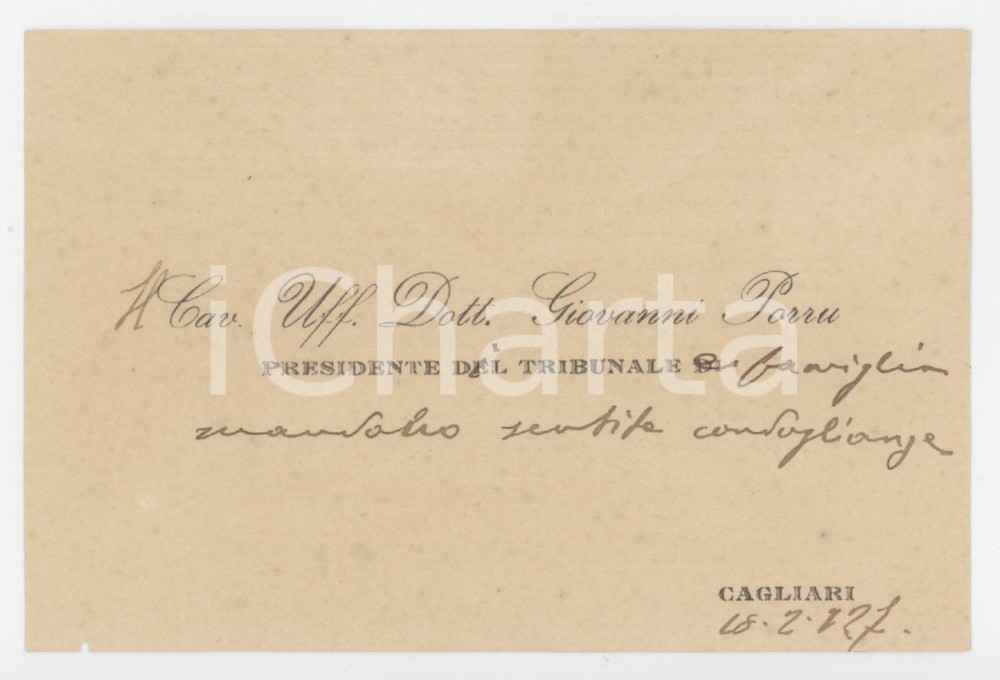 Il Cav. Uff. Dott. Giovanni Porru
PRESIDENTE DEL TRIBUNALE e famiglia
mandano sentite condoglianze
CAGLIARI
18.2.927.
iCharta